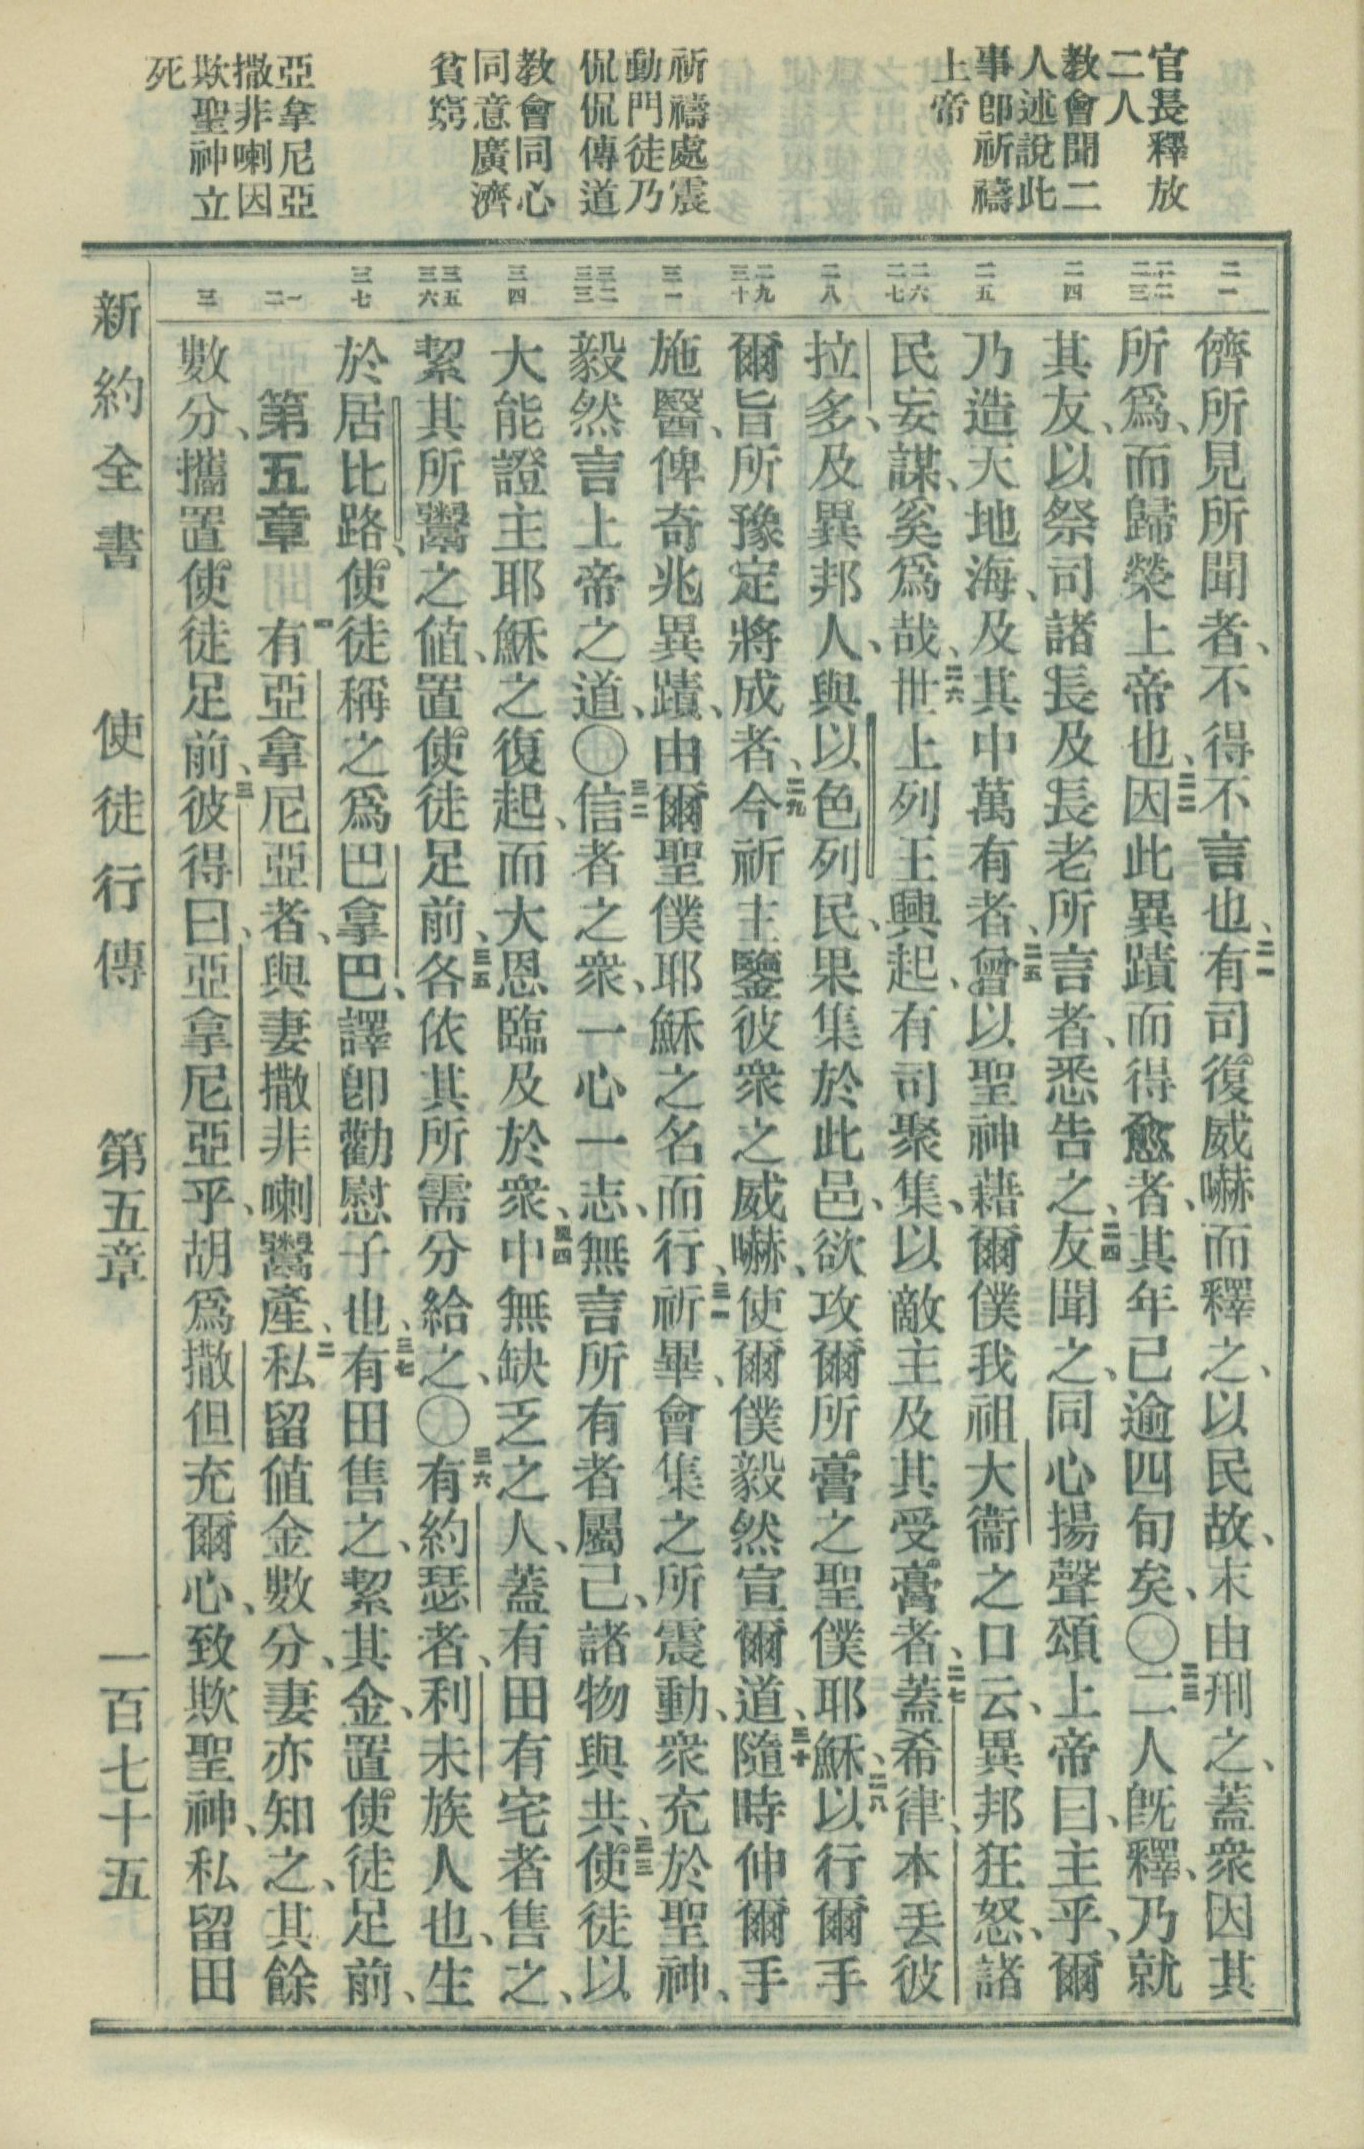 官長釋放
二人
教會聞二
人述說此
事卽祈禱
上帝
祈禱處震
動門徒乃
侃侃傳道
教會同心
同意廣濟
貧窮
亞拿尼亞
撒非喇因
欺聖神立
死
二一
二二 二三
二四
二五
二六 二七
二八
二九 三十
三一
三二 三三
三四
三五 三六
三七
一 二
三
儕所見所聞者、不得不言也、二一有司復威嚇而釋之、以民故、末由刑之、蓋衆因其
所爲、而歸榮上帝也、二二因此異蹟而得愈者、其年已逾四旬矣、〇二三二人旣釋、乃就
其友、以祭司諸長及長老所言者、悉告之、二四友聞之、同心揚聲頌上帝曰、主乎、爾
乃造天地海、及其中萬有者、二五曾以聖神藉爾僕我祖大衞之口云、異邦狂怒、諸
民妄謀、奚爲哉、二六世上列王興起、有司聚集、以敵主及其受膏者、二七蓋希律、本丟彼
拉多、及異邦人、與以色列民、果集於此邑、欲攻爾所膏之聖僕耶穌、二八以行爾手
爾旨所豫定將成者、二九今祈主鑒彼衆之威嚇、使爾僕毅然宣爾道、三十隨時伸爾手
施醫、俾奇兆異蹟、由爾聖僕耶穌之名而行、三一祈畢、會集之所震動、衆充於聖神、
毅然言上帝之道、〇三二信者之衆、一心一志、無言所有者屬己、諸物與共、三三使徒以
大能證主耶穌之復起、而大恩臨及於衆、三四中無缺乏之人、蓋有田有宅者售之、
絜其所鬻之値、置使徒足前、三五各依其所需分給之、〇三六有約瑟者、利未族人也、生
於居比路、使徒稱之爲巴拿巴、譯卽勸慰子也、三七有田售之、絜其金、置使徒足前、
第五章 一有亞拿尼亞者、與妻撒非喇鬻產、二私留値金數分、妻亦知之、其餘
數分、攜置使徒足前、三彼得曰、亞拿尼亞乎、胡爲撒但充爾心、致欺聖神、私留田
新約全書 使徒行傳 第五章 一百七十五